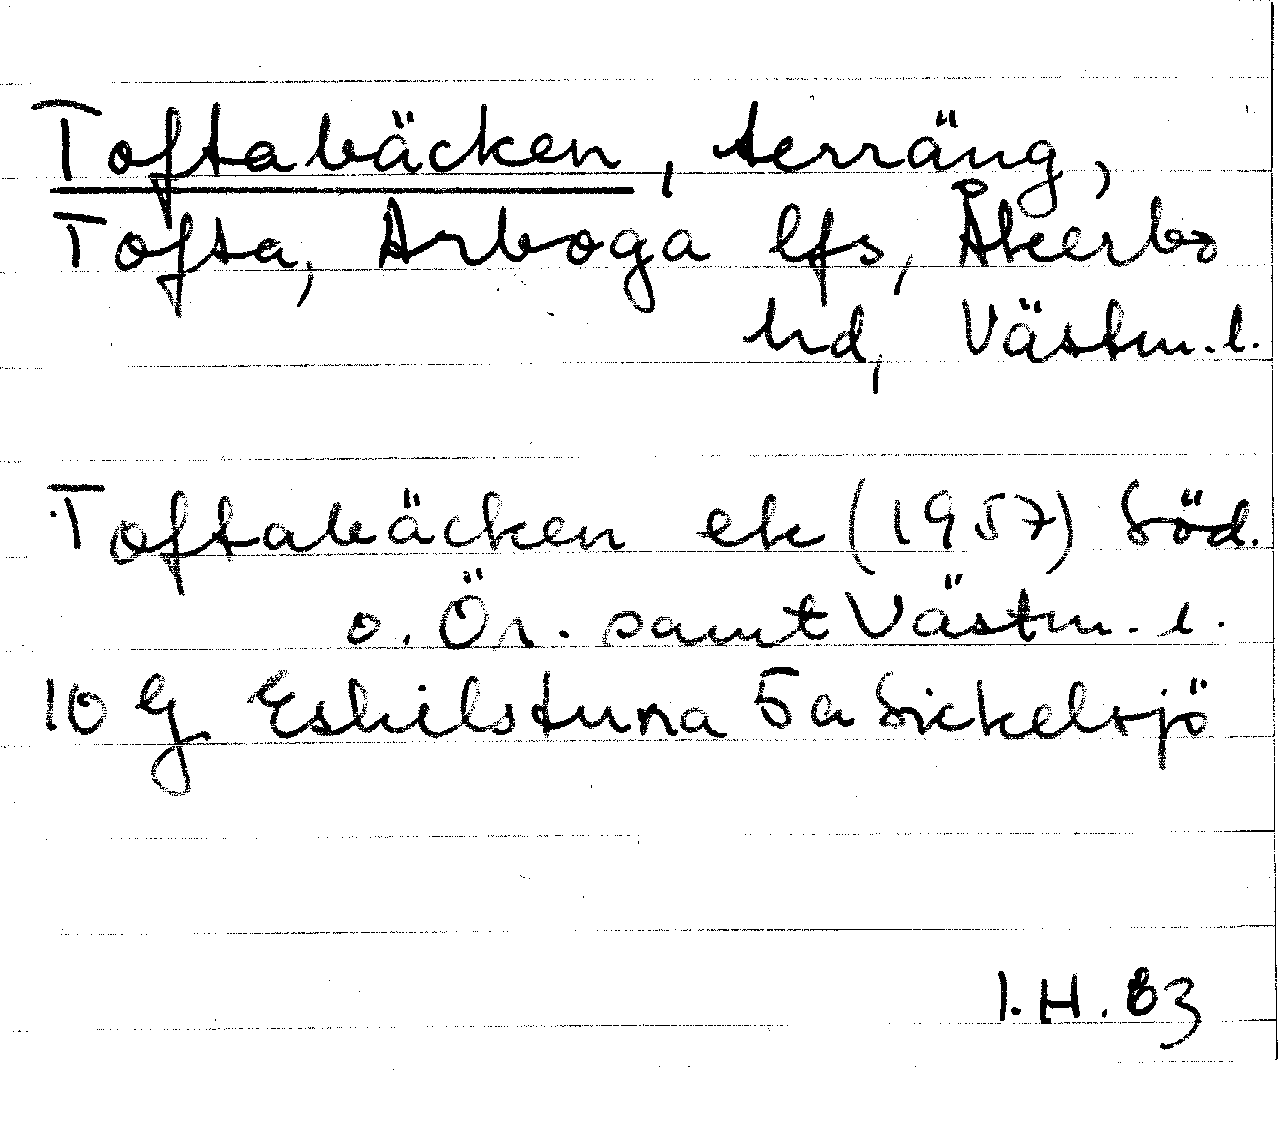 Toftabäcken, terräng,
Tofta, Arboga lfs, Åkerbo
hd, Västm. l.
Toftabäcken ek (1957) Söd.
o. Ör. samt Västm. l.
10 G Eskilstuna 5a Sickelsjö
I.H. 83